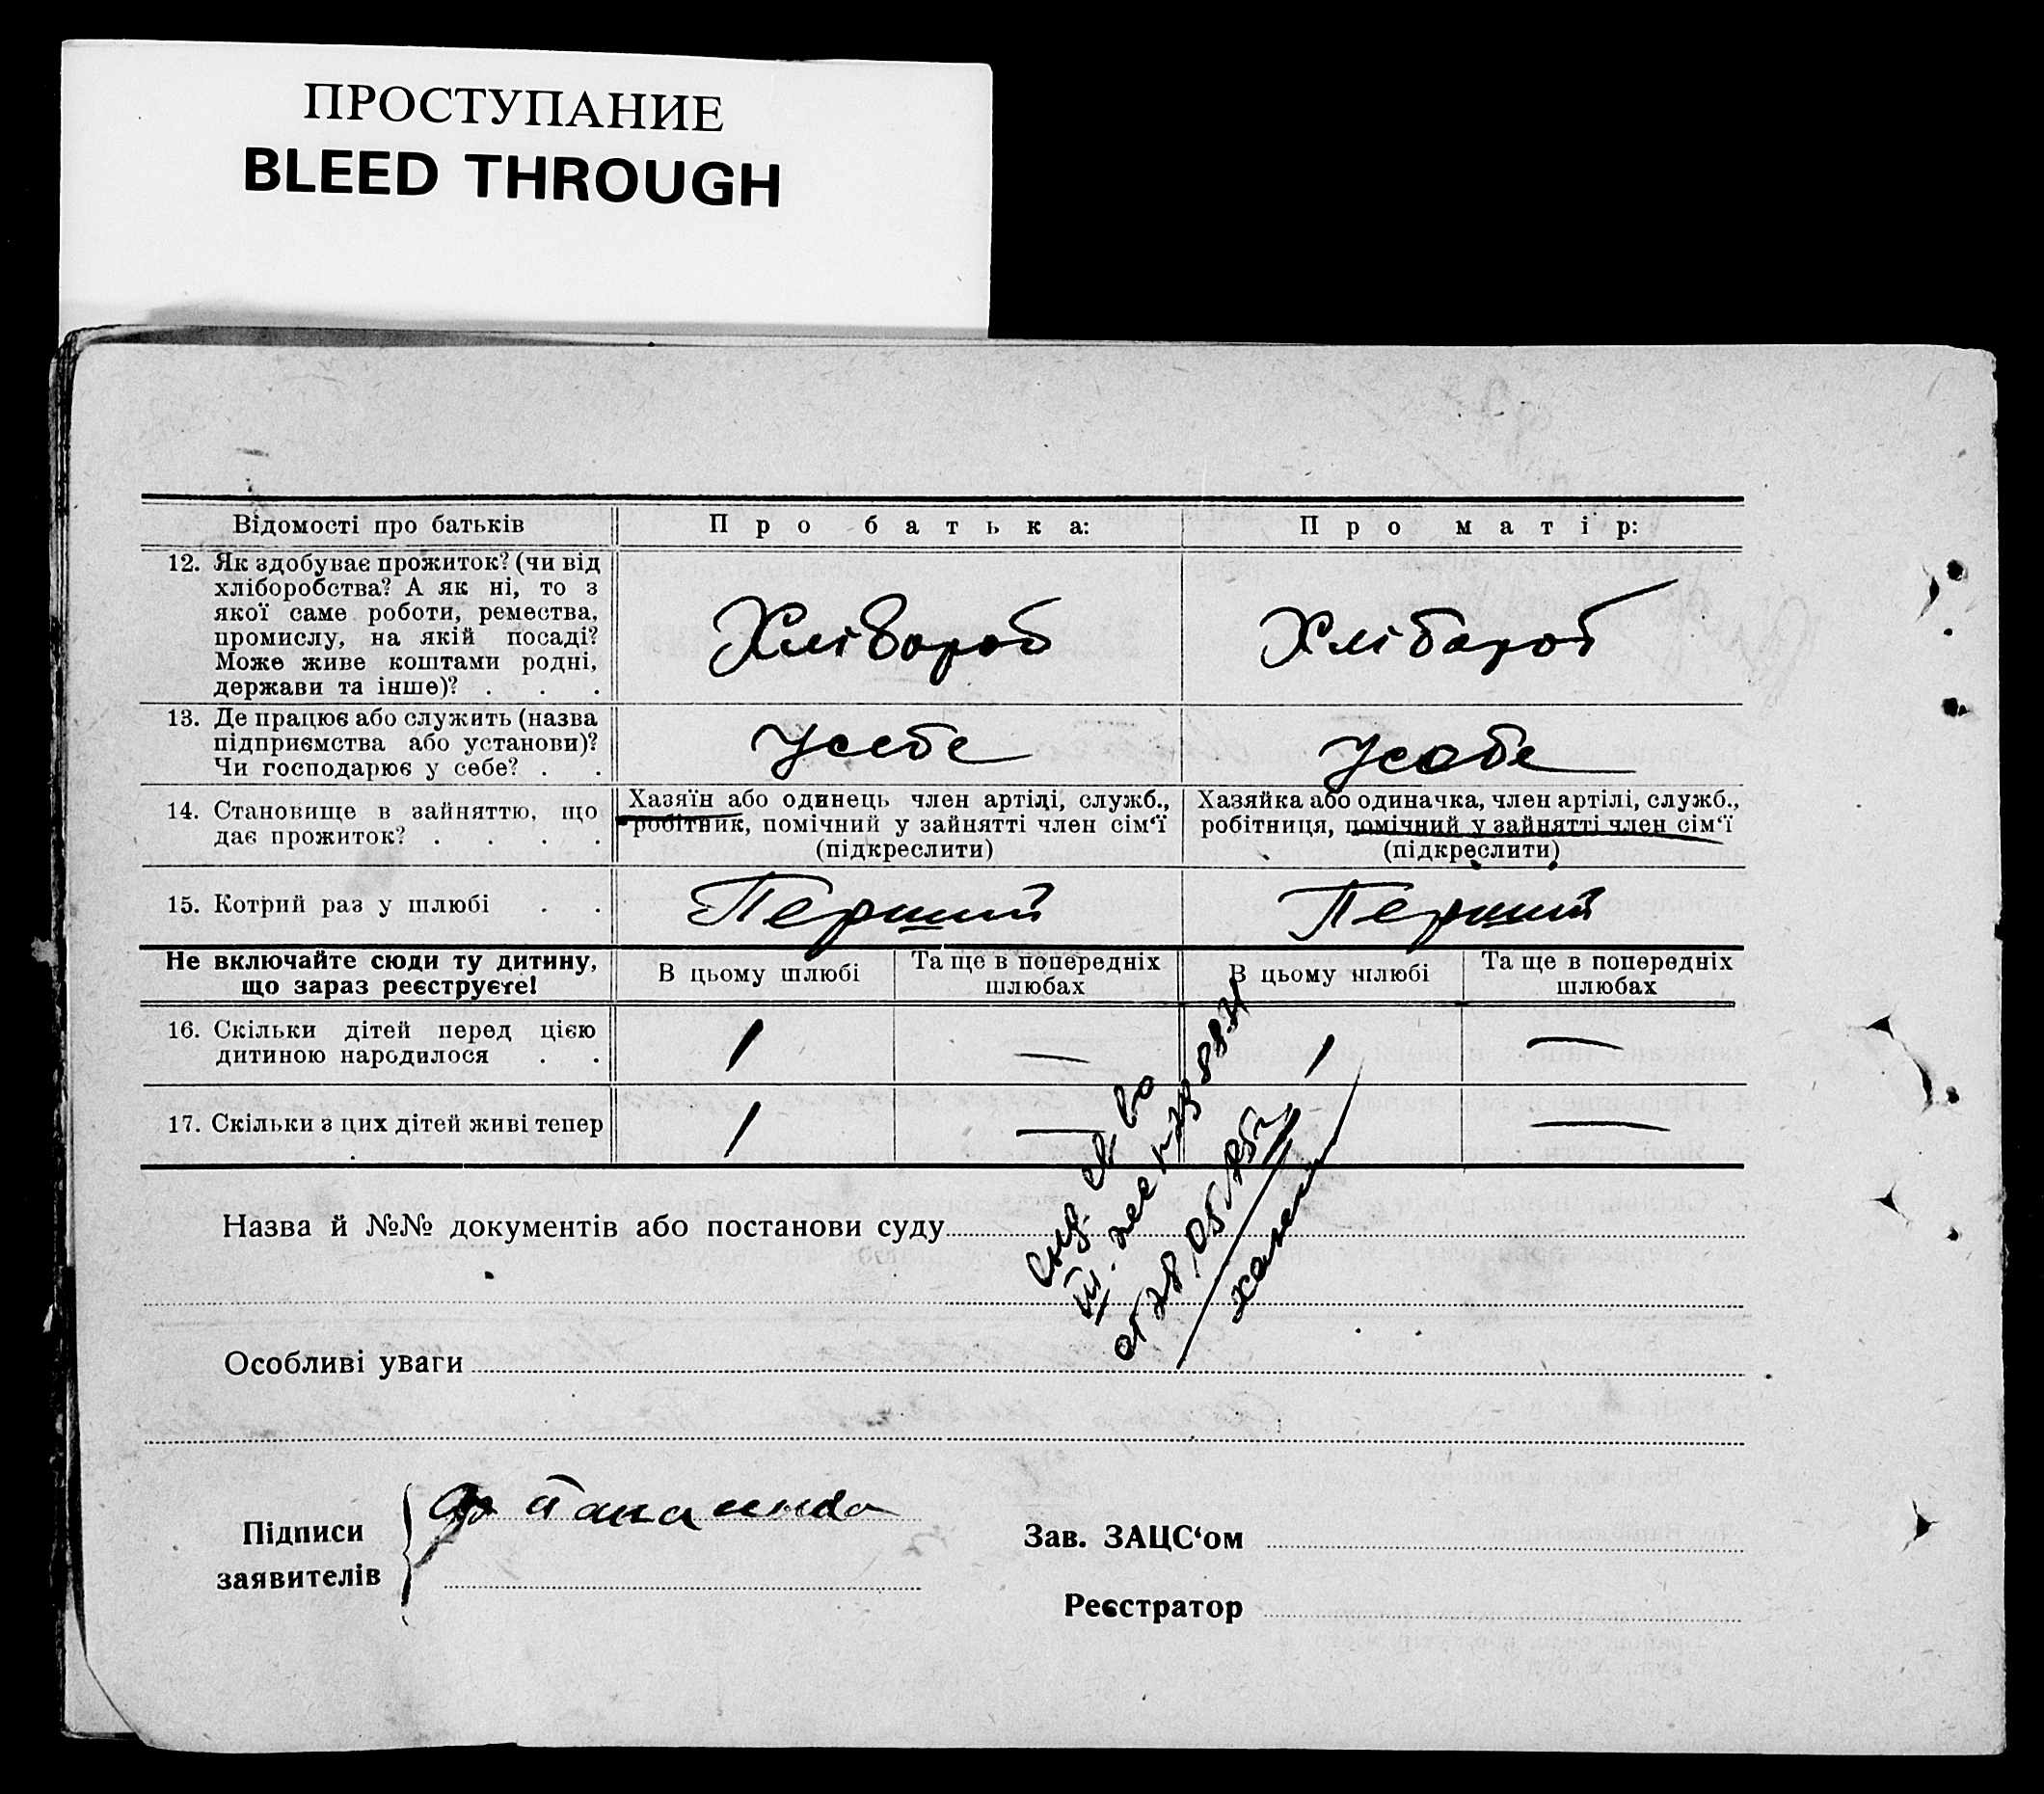 ПРОСТУПАНИЕ
BLEED THROUGH
Відомості про батьків
Про батька:
Про матір:
12. Як здобуває прожиток? (чи від
хліборобства? А як ні, то з
якої саме роботи, ремества,
промислу, на якій посаді?
Може живе коштами родні,
держави та інше)? . . .
Хлібороб
Хлібороб
13. Де працює або служить (назва
підприємства або установи)?
Чи господарює у себе? . .
Усебе
Усобе
14. Становище в зайняттю, що
дає прожиток? . . . .
Хазяїн або одинець член артілі, служб.,
робітник, помічний у зайнятті член сім‘ї
(підкреслити)
Хазяйка або одиначка, член артілі, служб.,
робітниця, помічний у зайнятті член сім‘ї
(підкреслити)
15. Котрий раз у шлюбі . .
Перший
Перший
Не включайте сюди ту дитину,
що зараз реєструєте!
В цьому шлюбі
Та ще в попередніх
шлюбах
В цьому шлюбі
Та ще в попередніх
шлюбах
16. Скільки дітей перед цією
дитиною народилося . .
1
—
1
—
17. Скільки з цих дітей живі тепер
1
—
1
—
Назва й №№ документів або постанови суду
от 28,05
Особливі уваги
Підписи
заявителів
Зав. ЗАЦС‘ом
Реєстратор